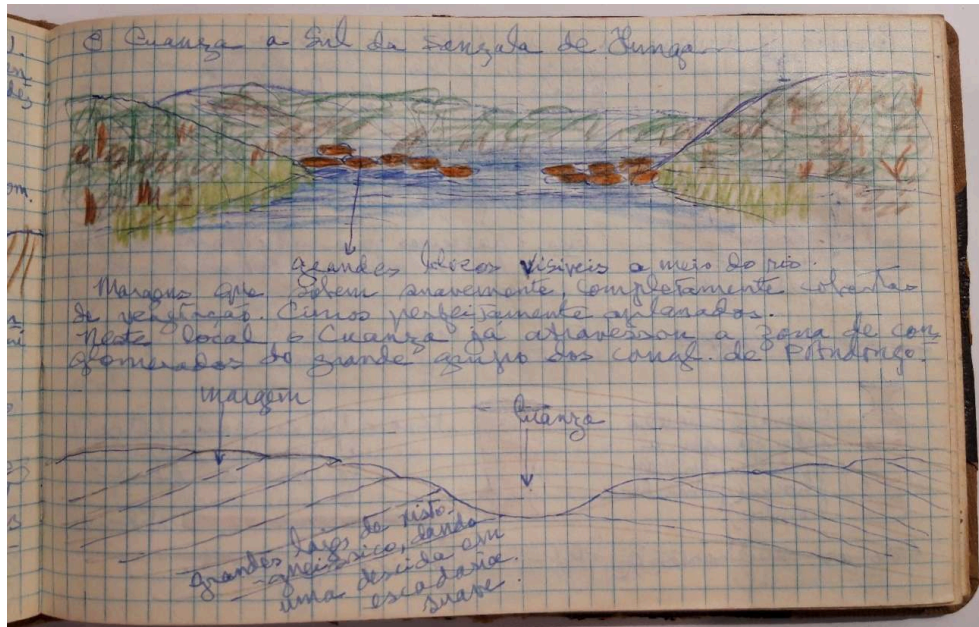 O Cuanza a Sul da Sanzala de Hunga
grandes blocos visíveis a meio do rio.
Margens que sobem suavemente, completamente cobertas
de vegetação. Cimos perfeitamente aplanados.
Neste local o Cuanza já atravessou a zona de con
glomerados do grande grupo dos congl. de
margem
Cuanza
grandes lages do xisto-
-gneissico, dando
uma descida em
escadaria
suave.